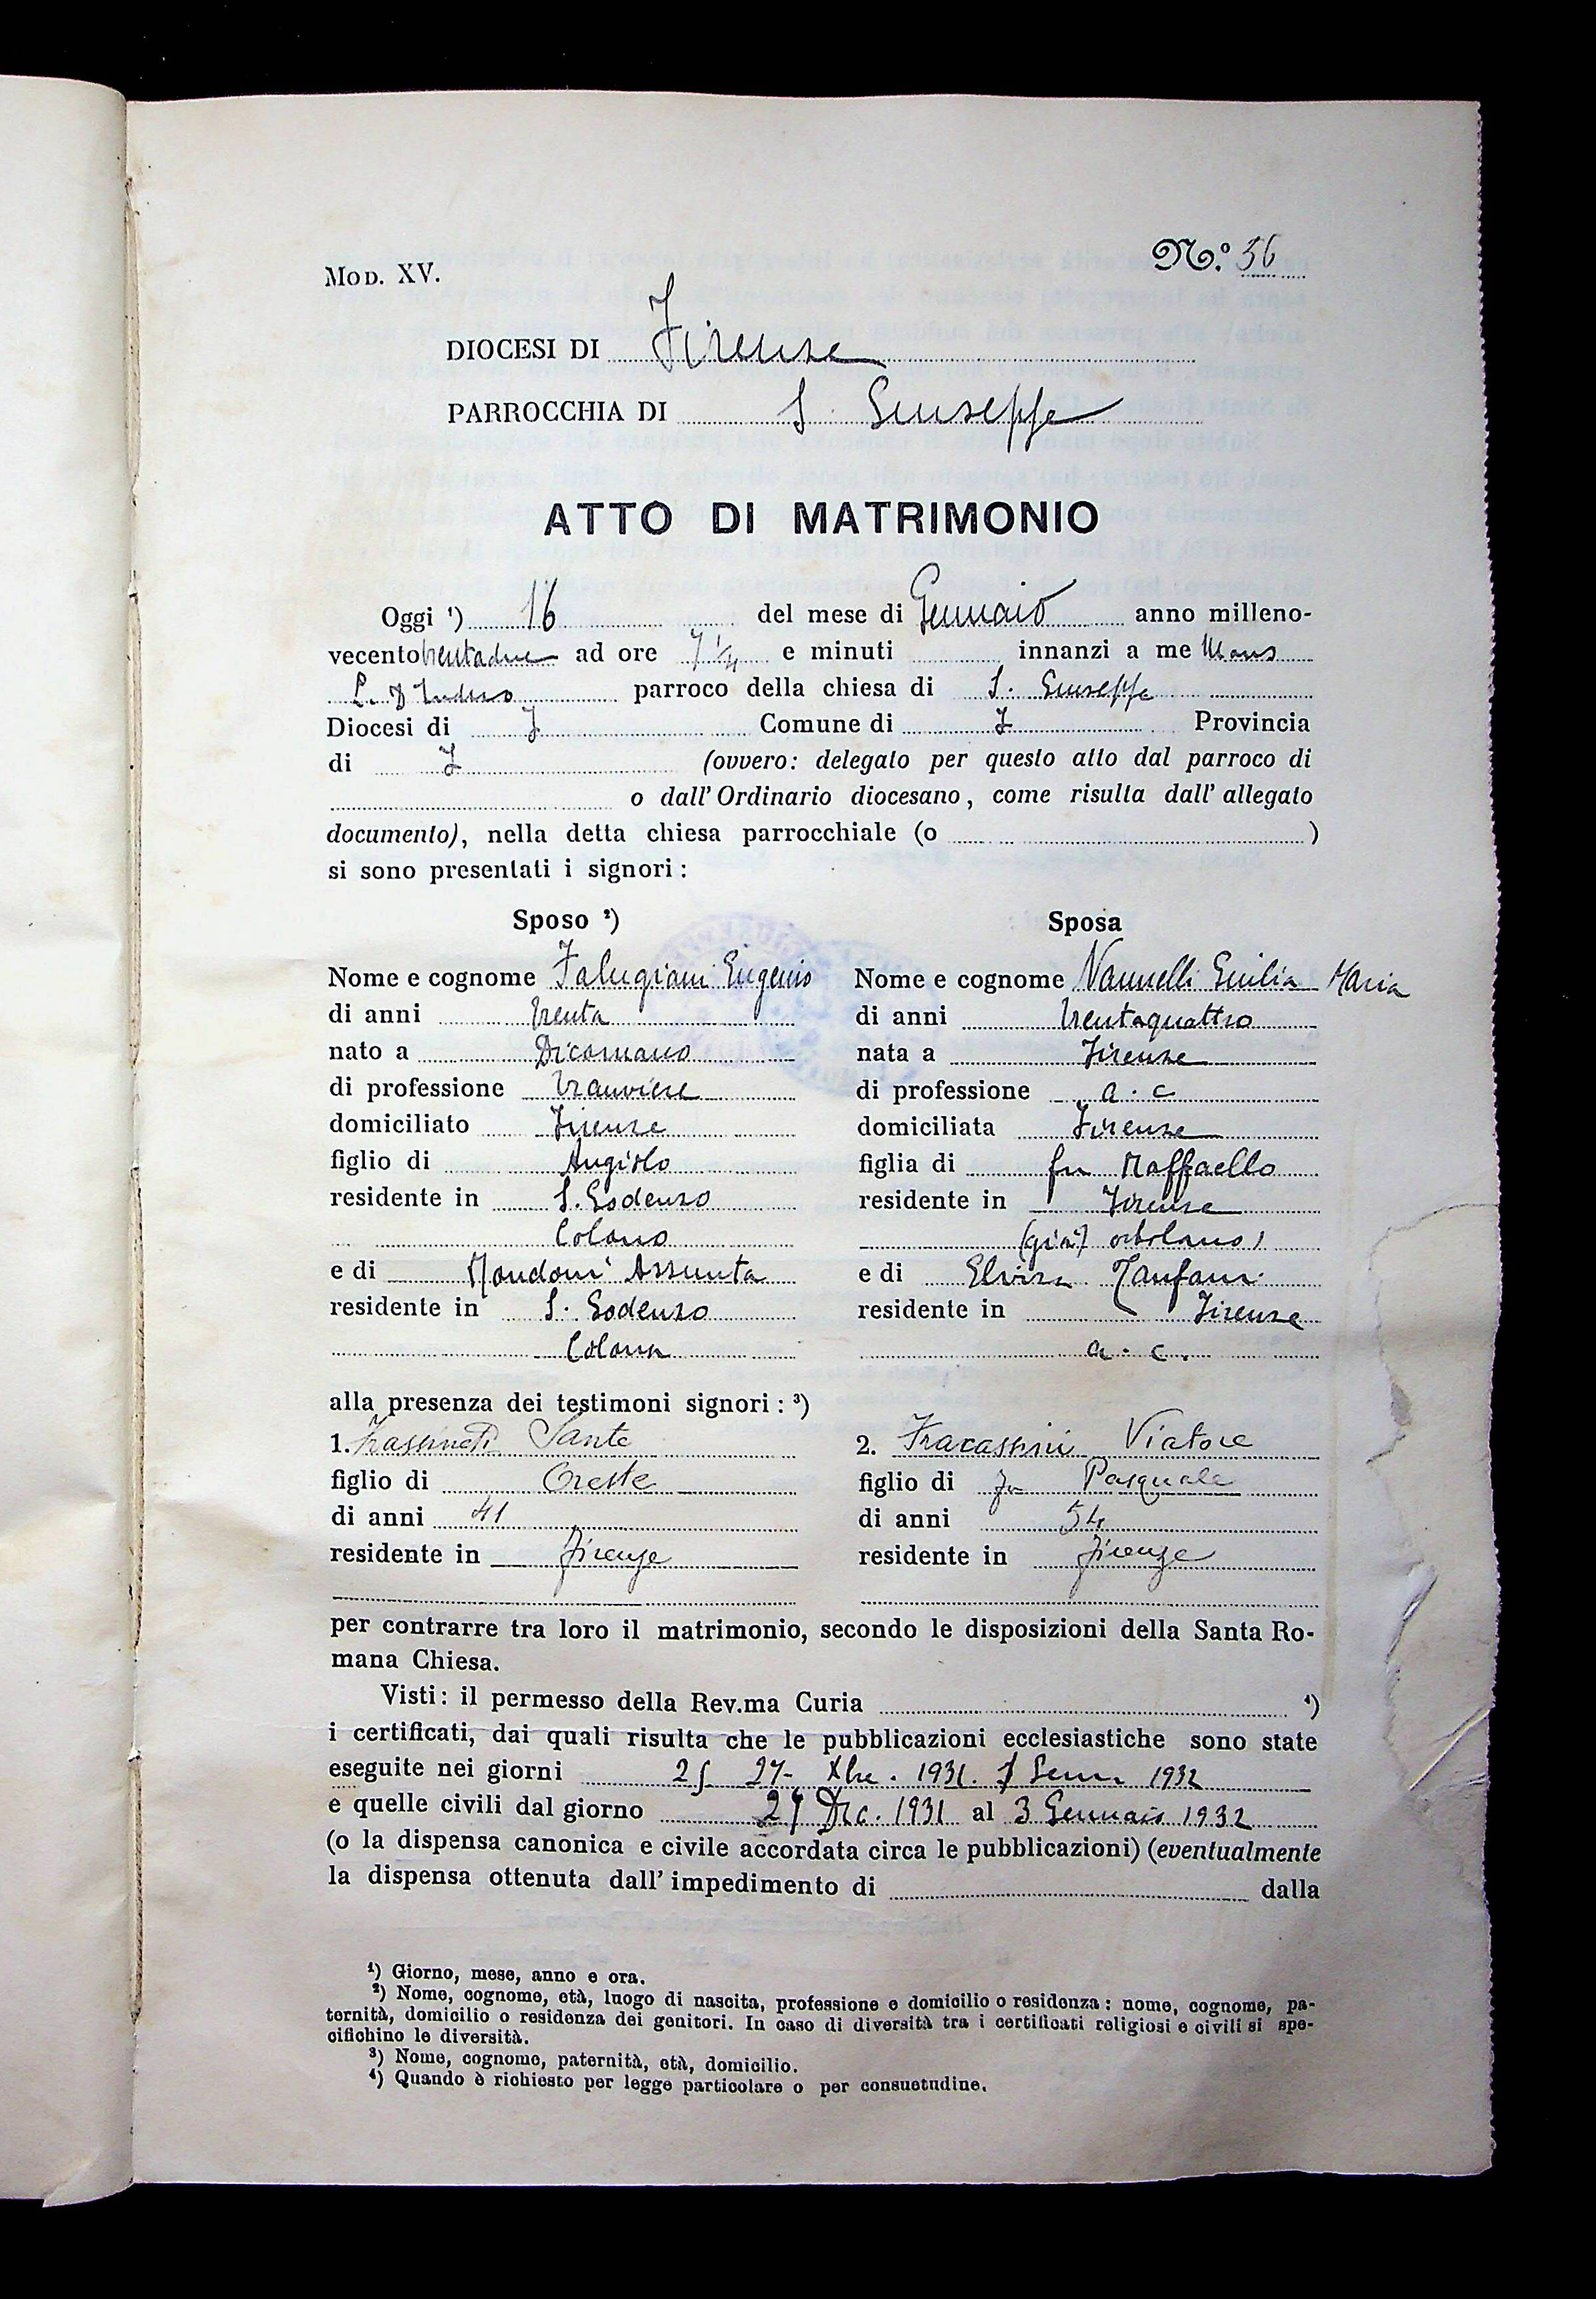 Mod. XV.
N.° 56
DIOCESI DI Firenze
PARROCCHIA DI S. Giuseppe
ATTO DI MATRIMONIO
Oggi ¹) 16 del mese di Gennaio anno milleno-
vecento trentadue ad ore 7 1/4 e minuti innanzi a me Mons
L. parroco della chiesa di S. Giuseppe
Diocesi di F Comune di F Provincia
di F (ovvero: delegato per questo atto dal parroco di
o dall' Ordinario diocesano, come risulta dall' allegato
documento), nella detta chiesa parrocchiale (o )
si sono presentati i signori:
Sposo ²)
Nome e cognome Falugiani Eugenio
di anni trenta
nato a Dicomano
di professione tranviere
domiciliato Firenze
figlio di Angiolo
residente in S. Godenzo
Colono
e di Mondoni Assunta
residente in S. Godenzo
Colona
Sposa
Nome e cognome Vannelli Emilia Maria
di anni trentaquattro
nata a Firenze
di professione a. c
domiciliata Firenze
figlia di fu Raffaello
residente in Firenze
(già) ortolano)
e di Elvira Tanfani
residente in Firenze
a. c.
alla presenza dei testimoni signori: ³)
1. Frassineti Sante
figlio di Oreste
di anni 41
residente in Firenze
2. Fracassini Viatore
figlio di fu Pasquale
di anni 54
residente in Firenze
per contrarre tra loro il matrimonio, secondo le disposizioni della Santa Ro-
mana Chiesa.
Visti: il permesso della Rev.ma Curia ⁴)
i certificati, dai quali risulta che le pubblicazioni ecclesiastiche sono state
eseguite nei giorni 25 27- Xbre. 1931. 1 Genn. 1932
e quelle civili dal giorno 27 Dic. 1931 al 3 Gennaio 1932
(o la dispensa canonica e civile accordata circa le pubblicazioni) (eventualmente
la dispensa ottenuta dall' impedimento di dalla
¹) Giorno, mese, anno e ora.
²) Nome, cognome, età, luogo di nascita, professione e domicilio o residenza: nome, cognome, pa-
ternità, domicilio o residenza dei genitori. In caso di diversità tra i certificati religiosi e civili si spe-
cifichino le diversità.
³) Nome, cognome, paternità, età, domicilio.
⁴) Quando è richiesto per legge particolare o per consuetudine.